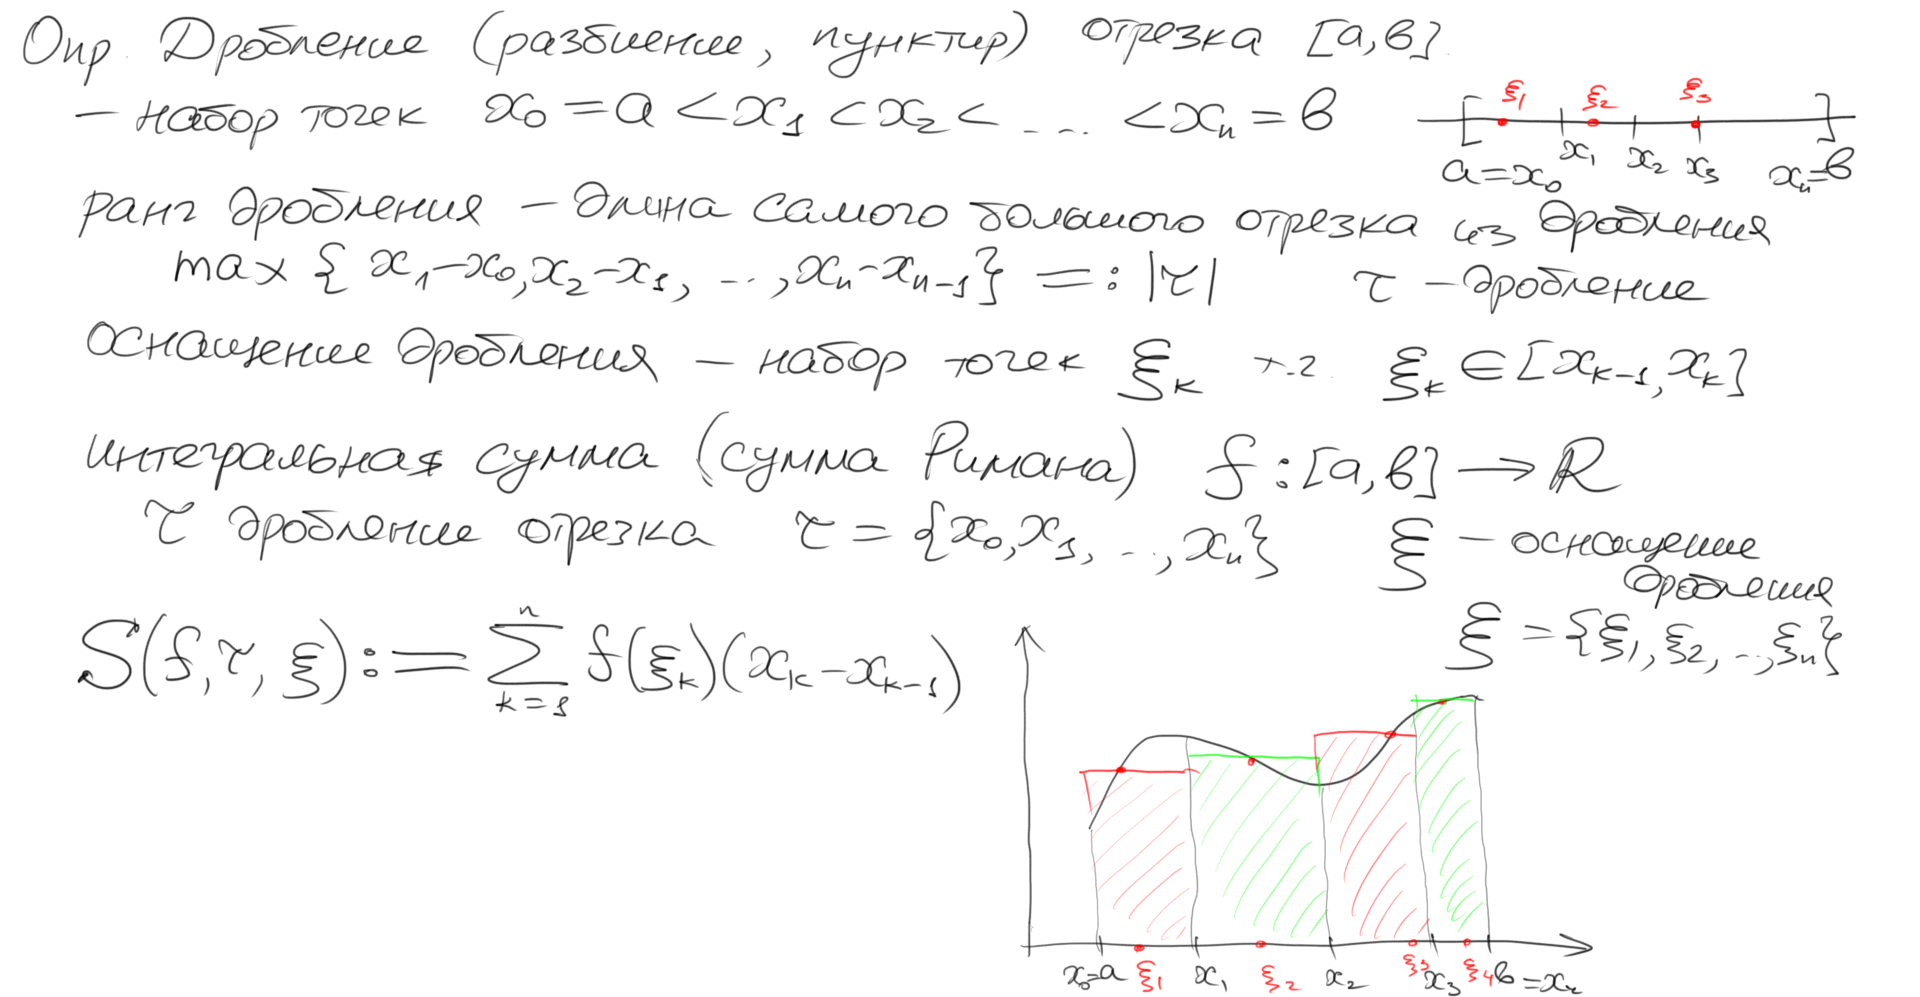 Опр. Дробление (разбиение, пунктир) отрезка [a,b].
– набор точек x₀ = a < x₁ < x₂ < ... < xₙ = b
ξ₁ ξ₂ ξ₃
a=x₀ x₁ x₂ x₃ xₙ=b
ранг дробления – длина самого большого отрезка из дробления
max { x₁–x₀, x₂–x₁, ..., xₙ–xₙ₋₁} =: |τ| τ – дробление
оснащение дробления – набор точек ξₖ т.ч. ξₖ ∈ [xₖ₋₁, xₖ]
интегральная сумма (сумма Римана) f : [a,b] → ℝ
τ дробление отрезка τ = {x₀, x₁, ..., xₙ} ξ – оснащение
дробления
ξ = {ξ₁, ξ₂, ..., ξₙ}
S(f, τ, ξ) := ∑ₖ₌₁ⁿ f(ξₖ)(xₖ – xₖ₋₁)
x₀=a ξ₁ x₁ ξ₂ x₂ ξ₃ x₃ ξ₄ b=x₄